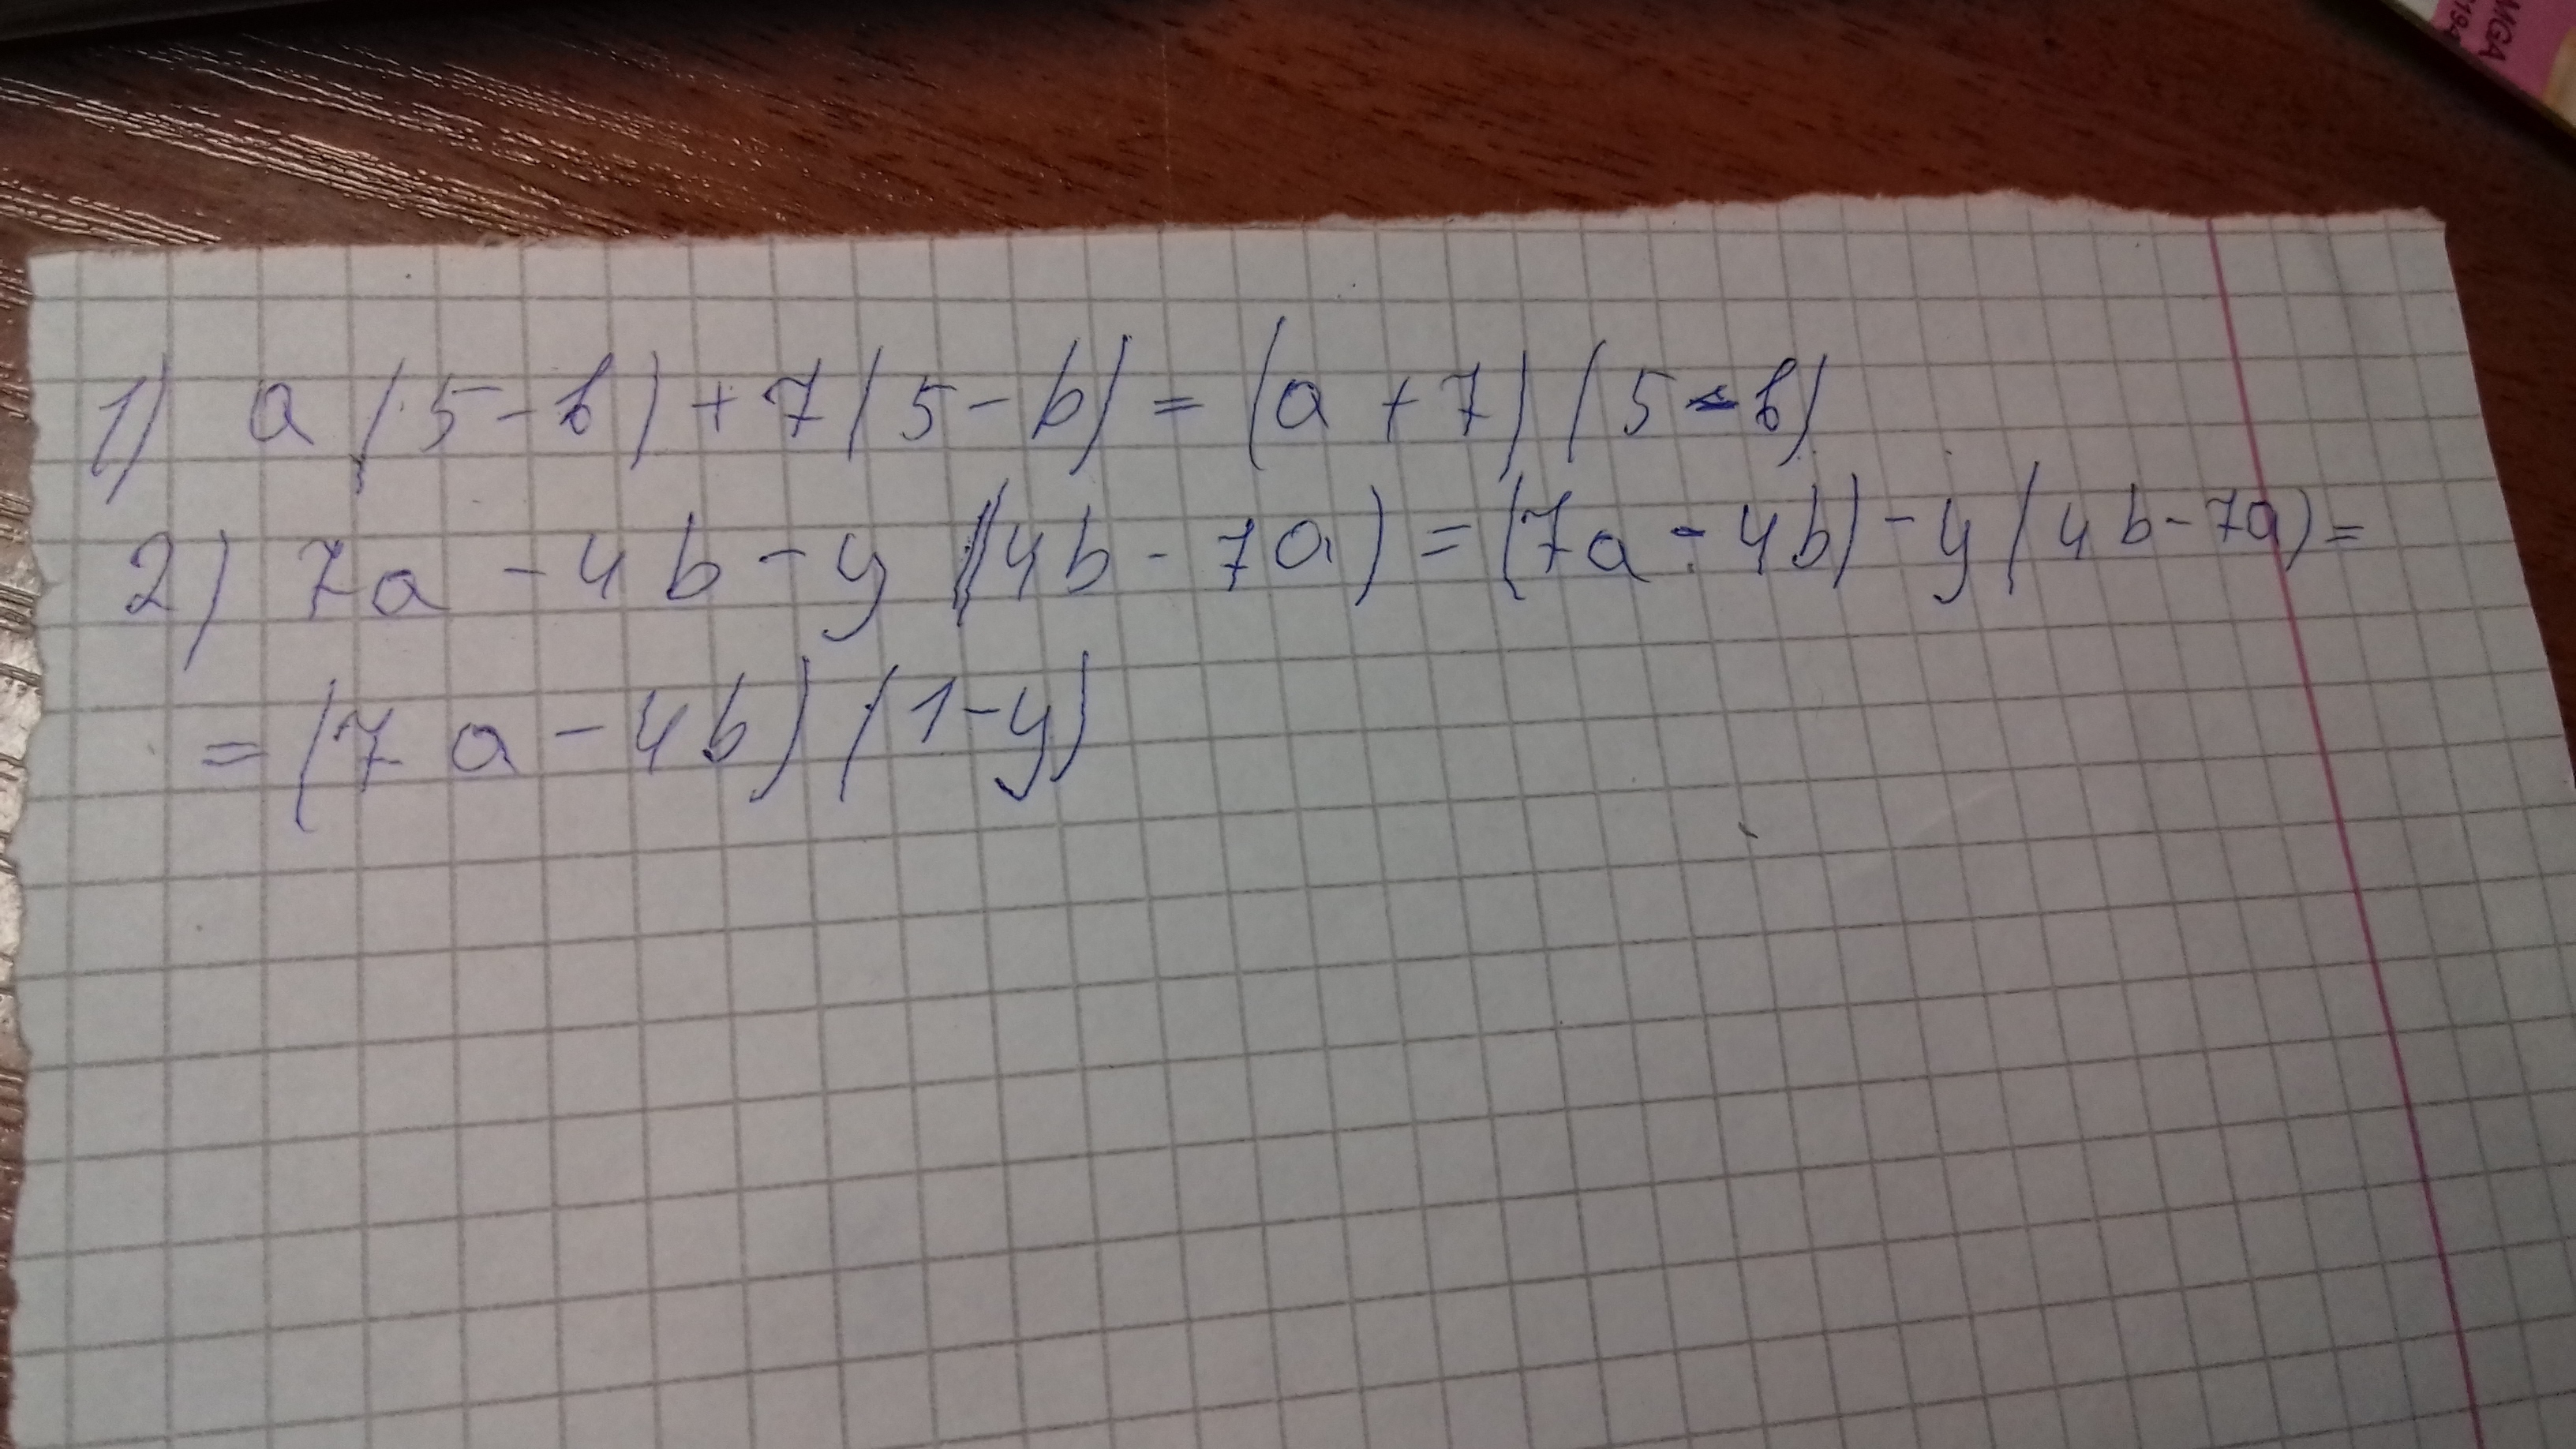 1) a(5-b)+7(5-b)=(a+7)(5-b)
2) 7a-4b-y(4b-7a)=(7a-4b)-y(4b-7a)=
=(7a-4b)(1-y)
MGA